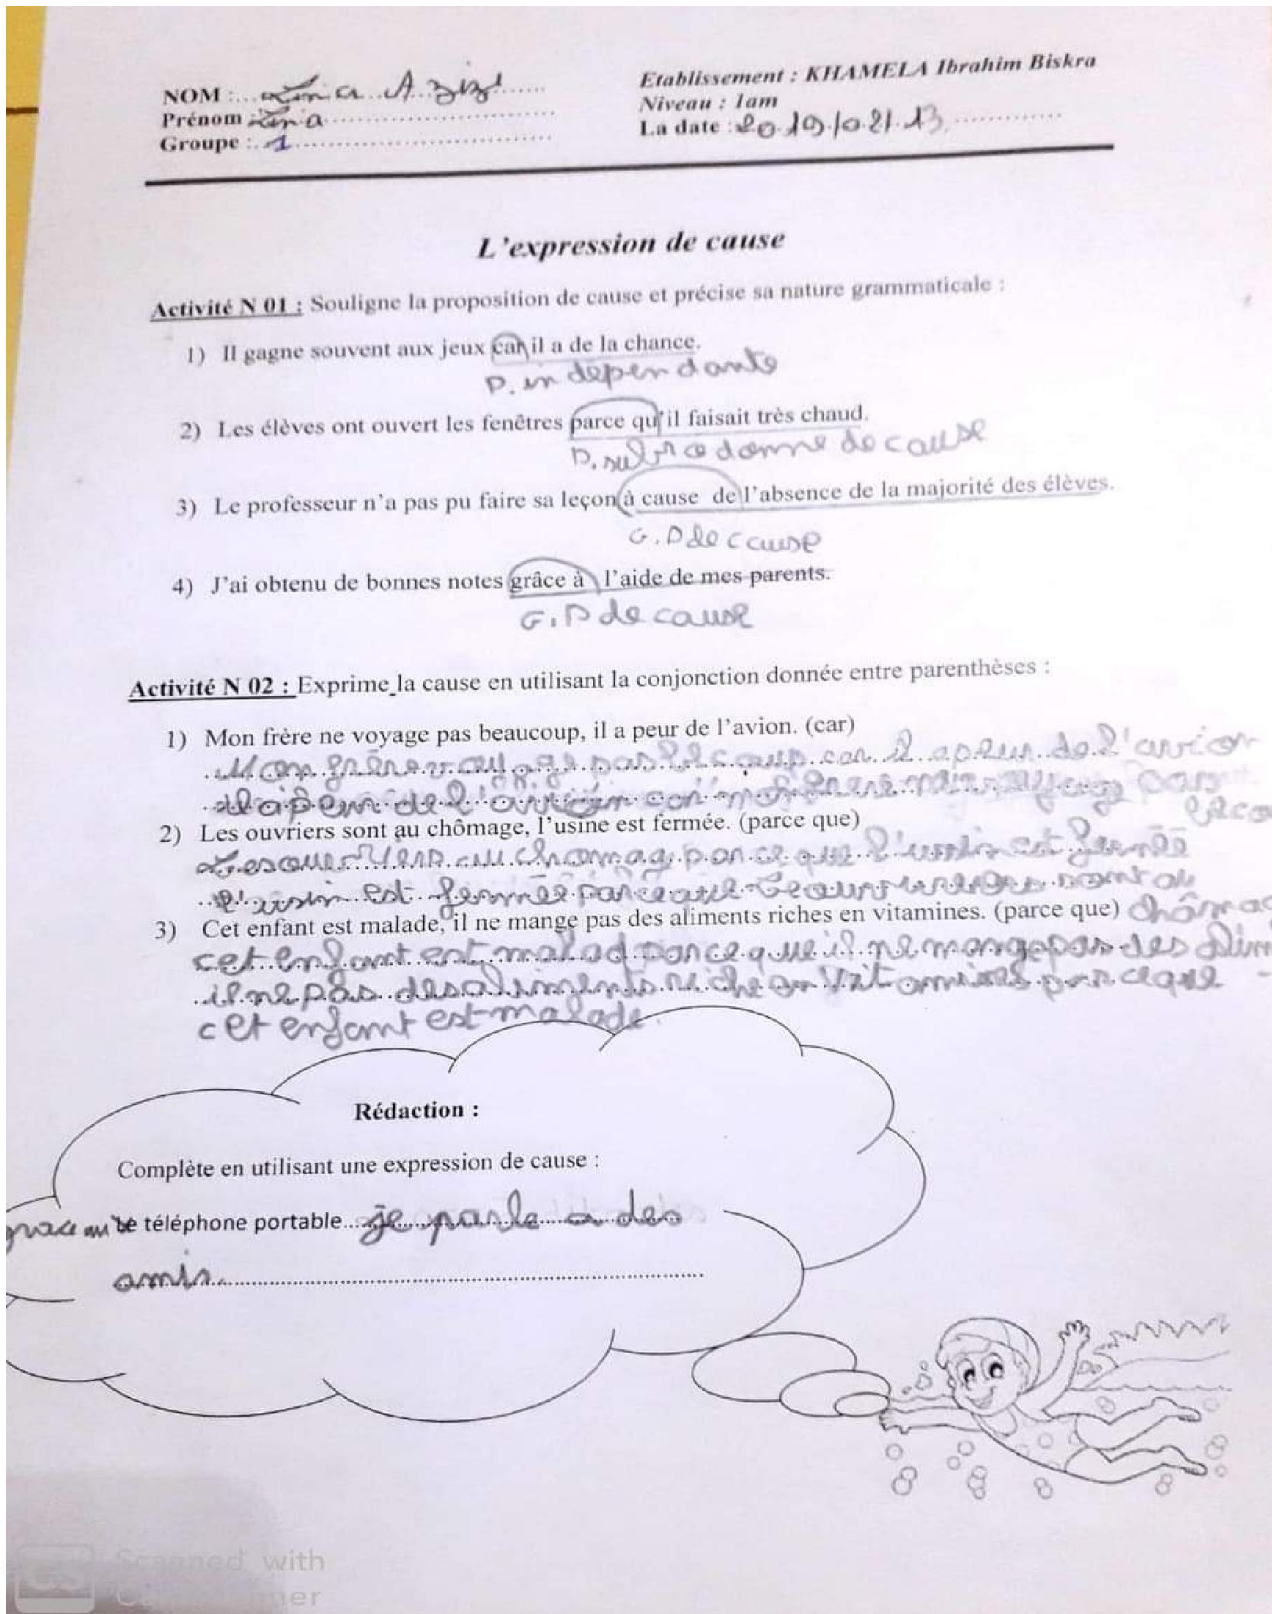 NOM :... Lina Azizi
Etablissement : KHAMELA Ibrahim Biskra
Prénom Lina
Niveau : 1am
Groupe :. 1
La date :
L'expression de cause
Activité N 01 : Souligne la proposition de cause et précise sa nature grammaticale :
1) Il gagne souvent aux jeux car il a de la chance.
P. indépendante
2) Les élèves ont ouvert les fenêtres parce qu'il faisait très chaud.
P. de cause
3) Le professeur n'a pas pu faire sa leçon à cause de l'absence de la majorité des élèves.
G.P de cause
4) J'ai obtenu de bonnes notes grâce à l'aide de mes parents.
G.P de cause
Activité N 02 : Exprime la cause en utilisant la conjonction donnée entre parenthèses :
1) Mon frère ne voyage pas beaucoup, il a peur de l'avion. (car)
Mon pas car il a peur de l'avion
de l' car pas
2) Les ouvriers sont au chômage, l'usine est fermée. (parce que)
au chomag parce que est fermée
est fermée sont au
3) Cet enfant est malade, il ne mange pas des aliments riches en vitamines. (parce que)
cet enfant est malad parce que il ne mange pas des
il ne pas des aliments riche en vitamines parceque
cet enfant est malade.
Rédaction :
Complète en utilisant une expression de cause :
grace au Le téléphone portable... je parle a des
amis
Scanned with